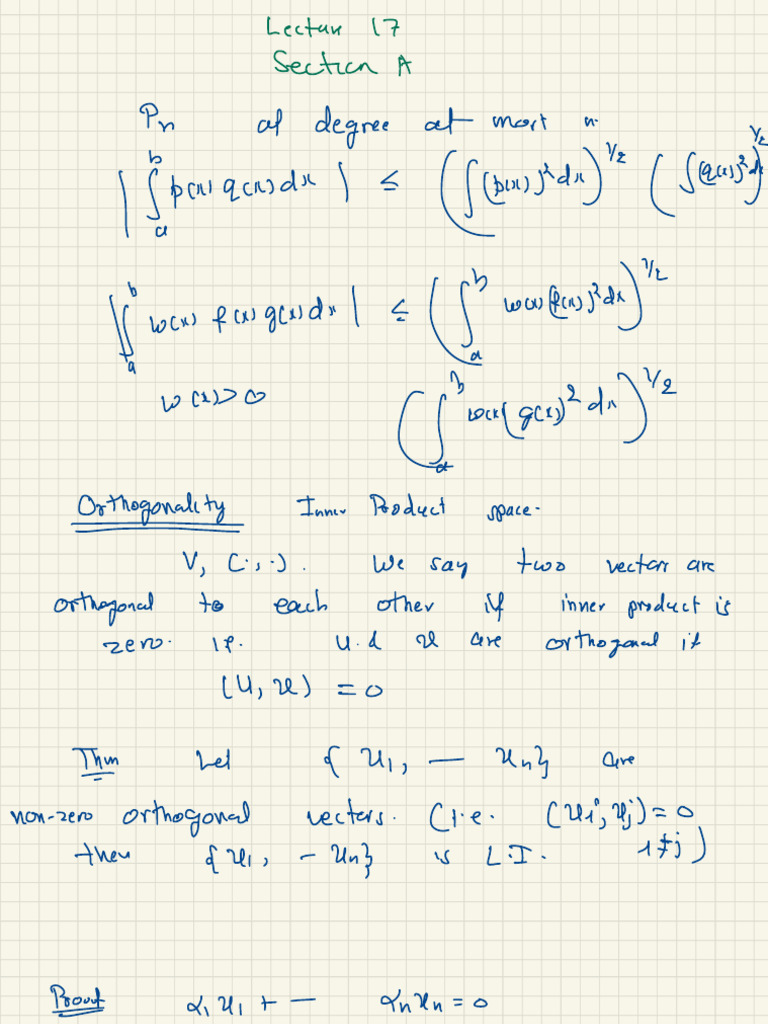 Lecture 17
Section A
Pn of degree at most n.
| ∫_a^b p(x) q(x) dx | ≤ ( ∫ (p(x))² dx )^{1/2} ( ∫ (q(x))² dx )^{1/2}
| ∫_a^b w(x) f(x) g(x) dx | ≤ ( ∫_a^b w(x) (f(x))² dx )^{1/2}
w(x) > 0 ( ∫_a^b w(x) (g(x))² dx )^{1/2}
Orthogonality Inner Product space.
V, (·,·). We say two vectors are
orthogonal to each other if inner product is
zero. i.e. u & v are orthogonal if
(u, v) = 0
Thm Let { v1, — vn} are
non-zero orthogonal vectors. (i.e. (vi, vj) = 0
then {v1, - vn} is L.I. i≠j)
Proof α1 v1 + — αn vn = 0